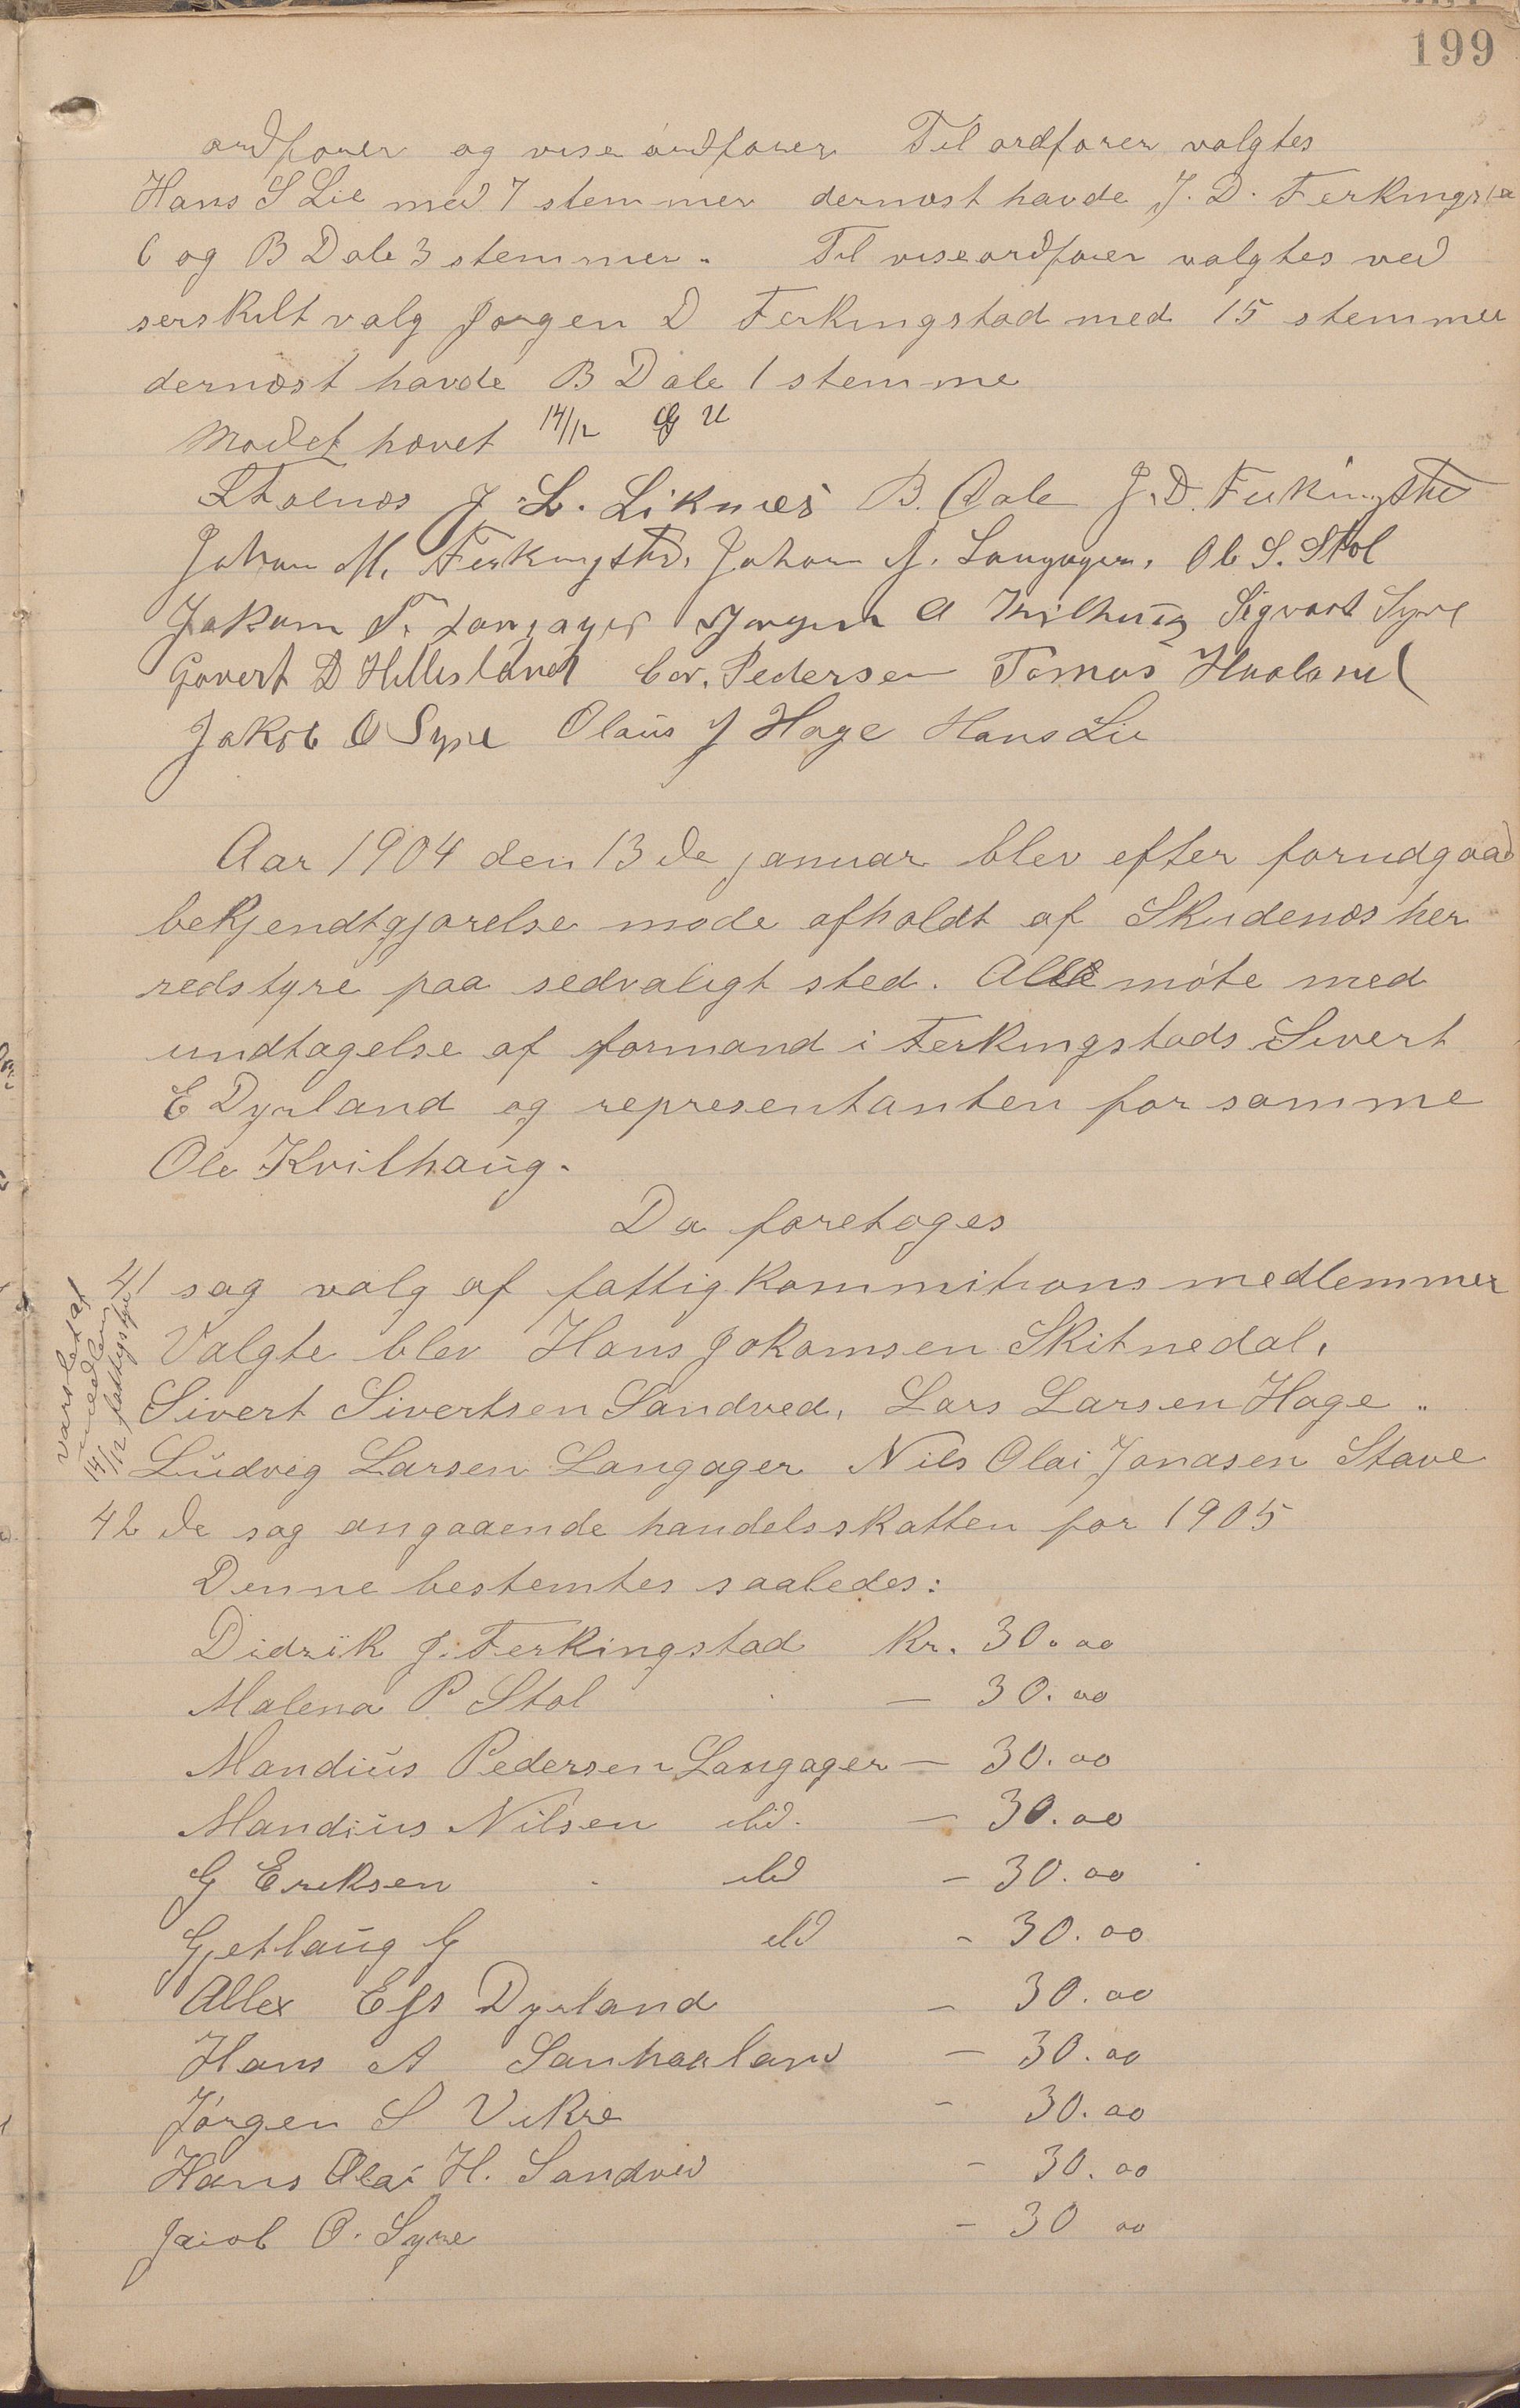 199
ordforer og vise ordforer Til ordforer valgtes
Hans S Lie med 7 stemmer dernæst havde J. D. Ferkingsta
6 og B Dale 3 stemmer. Til viseordforer valgtes ved
serskilt valg Jorgen D Ferkingstad med 15 stemmer
dernæst havde B Dale 1 stemme
Modet hævet 14/12
J. L. Liknæs B. Dale J. D. Ferkingstad
Johan M. Ferkingstd. Johan J. Langager. Ole S. Stol
Jakom T. Langager Jorgen A Kvilhaug Sigvart Syre
Govert D Hillesland Cor. Pedersen Tomas Haaland
Jakob O Syre Olaus J Hage Hans Lie
Aar 1904 den 13 de januar blev efter forudgaad
bekjendtgjorelse mode afholdt af Skudenæs her
redstyre paa sedvaligt sted. Alle møte med
undtagelse af formand i Ferkingstads Sivert
E Dyrland og representanten for samme
Ole Kvilhaug.
Da foretoges
41 sag valg af fattigkommitions medlemmer
varslet af
medlem
14/12 fattigstyre
Valgte blev Hans Jokomsen Skitnedal,
Sivert Sivertsen Sandved, Lars Larsen Hage "
Ludvig Larsen Langager Nils Olai Jonasen Stave
42 de sag angaaende handelsskatten for 1905
Denne bestemtes saaledes:
Didrik J. Ferkingstad Kr. 30.00
Malena P Stol — 30.00
Mandius Pedersen Langager — 30.00
Mandius Nilsen ibid. — 30.00
G Eriksen ibid — 30.00
Gjetlaug G ibid - 30.00
Allex Efs Dyrland - 30.00
Hans A Sanhaaland — 30.00
Jörgen S Vikre - 30.00
Hans Olai H. Sandved - 30.00
Jacob O. Syre - 30 00